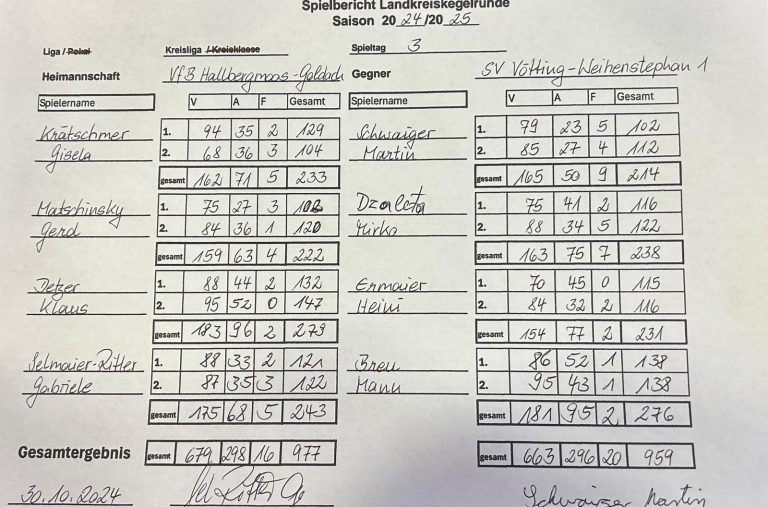 Spielbericht Landkreiskegelrunde
Saison 2024/2025
Liga / Pokal Kreisliga / Kreisklasse Spieltag 3
Heimannschaft VfB Hallbergmoos-Goldach Gegner SV Vötting-Weihenstephan 1
Spielername V A F Gesamt Spielername V A F Gesamt
Krätschmer 1. 94 35 2 129 Schwaiger 1. 79 23 5 102
Gisela 2. 68 36 3 104 Martin 2. 85 27 4 112
gesamt 162 71 5 233 gesamt 165 50 9 214
Matschinsky 1. 75 27 3 102 Dzaleta 1. 75 41 2 116
Gerd 2. 84 36 1 120 Mirko 2. 88 34 5 122
gesamt 159 63 4 222 gesamt 163 75 7 238
Detzer 1. 88 44 2 132 Ermaier 1. 70 45 0 115
Klaus 2. 95 52 0 147 Heini 2. 84 32 2 116
gesamt 183 96 2 279 gesamt 154 77 2 231
Selmaier-Ritter 1. 88 33 2 121 Breu 1. 86 52 1 138
Gabriele 2. 87 35 3 122 Mann 2. 95 43 1 138
gesamt 175 68 5 243 gesamt 181 95 2 276
Gesamtergebnis gesamt 679 298 16 977 gesamt 663 296 20 959
30.10.2024 Schwaiger Martin